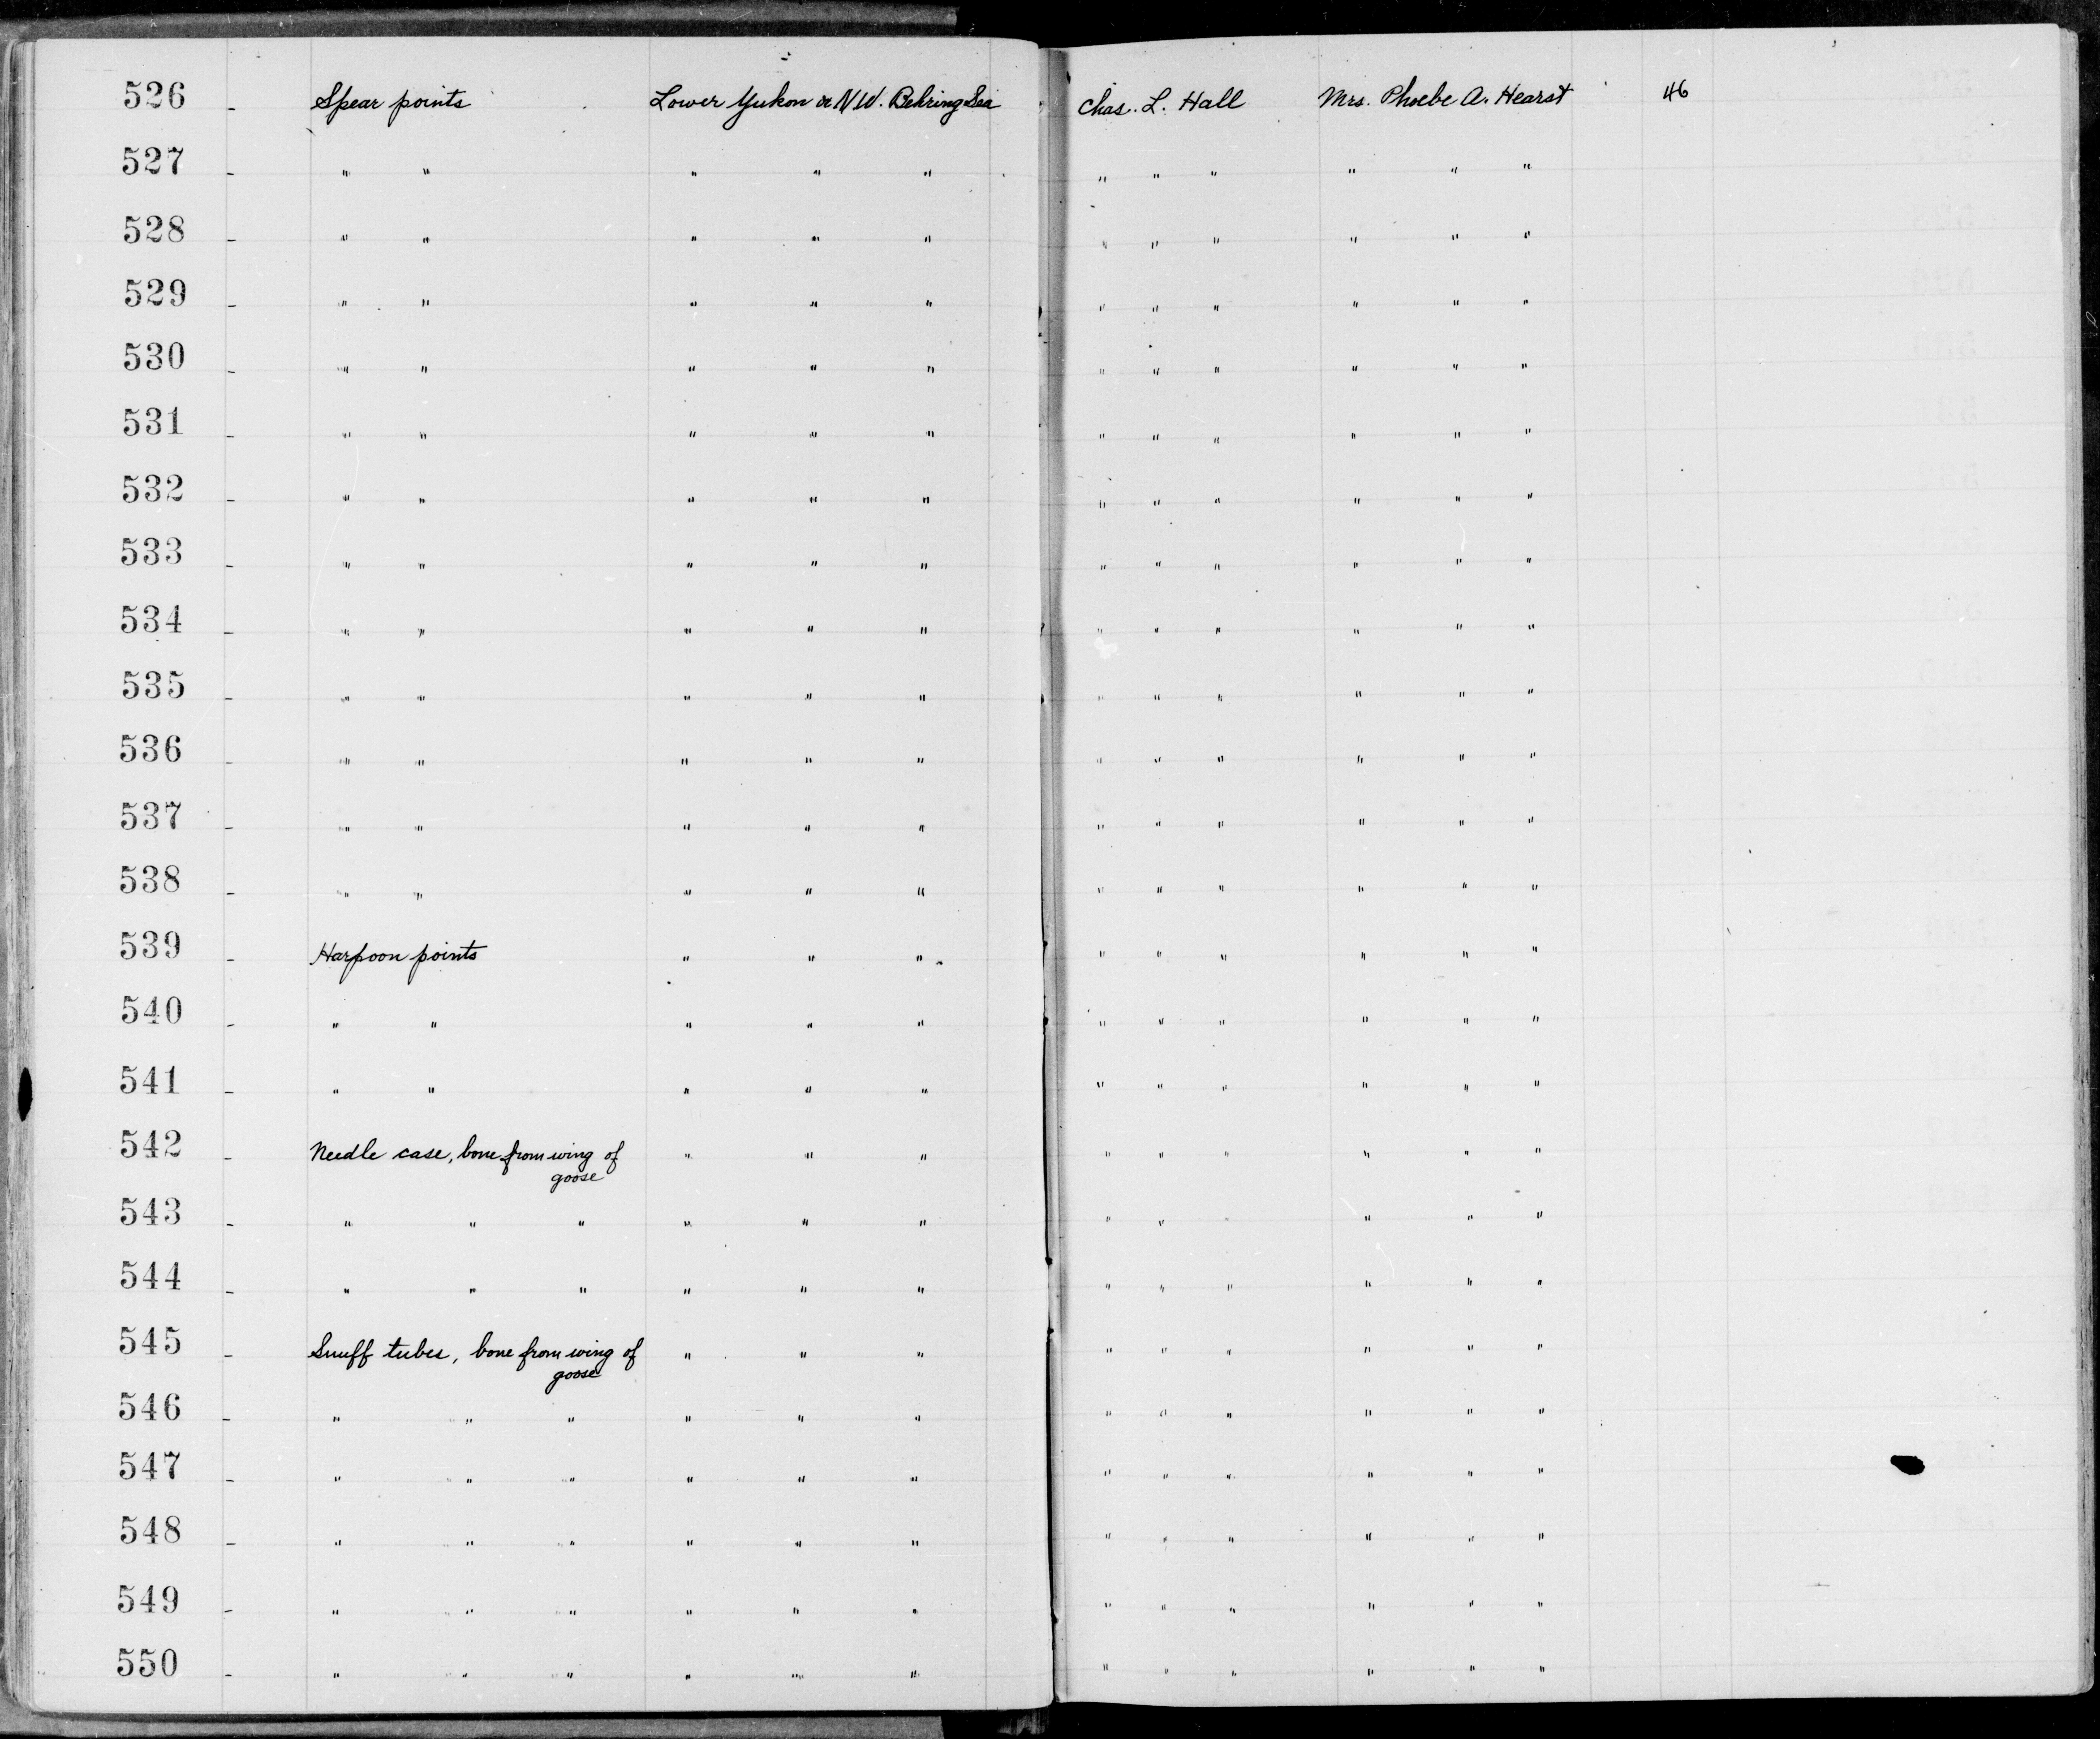 526 - Spear points Lower Yukon or N.W. Behring Sea Chas. L. Hall Mrs. Phoebe A. Hearst 46
527 - " " " " " " " " " " "
528 - " " " " " " " " " " "
529 - " " " " " " " " " " "
530 - " " " " " " " " " " "
531 - " " " " " " " " " " "
532 - " " " " " " " " " " "
533 - " " " " " " " " " " "
534 - " " " " " " " " " " "
535 - " " " " " " " " " " "
536 - " " " " " " " " " " "
537 - " " " " " " " " " " "
538 - " " " " " " " " " " "
539 - Harpoon points " " " " " " " " "
540 - " " " " " " " " " " "
541 - " " " " " " " " " " "
542 - Needle case, bone from wing of " " " " " " " " "
goose
543 - " " " " " " " " " " " "
544 - " " " " " " " " " " " "
545 - Snuff tubes, bone from wing of " " " " " " " " "
goose
546 - " " " " " " " " " " " "
547 - " " " " " " " " " " " "
548 - " " " " " " " " " " " "
549 - " " " " " " " " " " " "
550 - " " " " " " " " " " " "